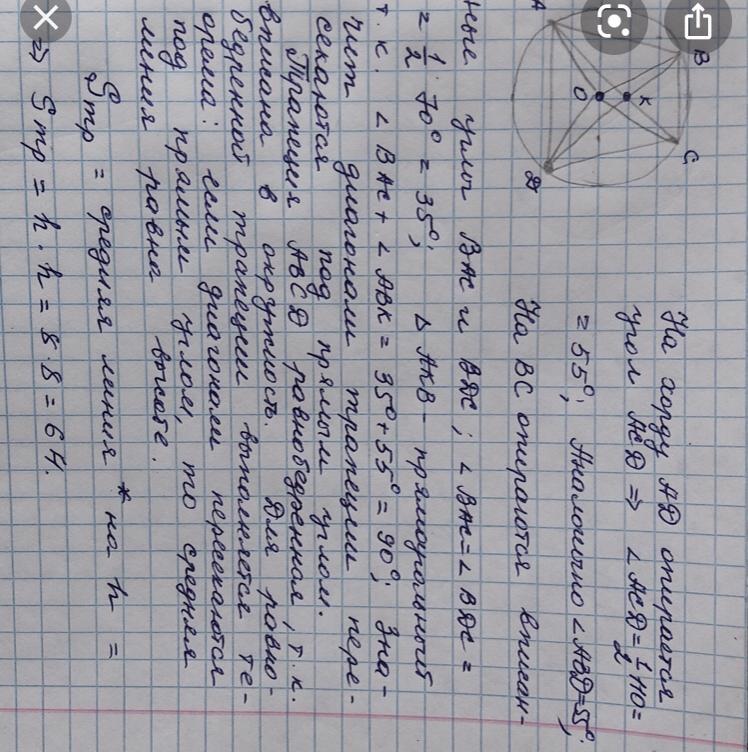 A
B
C
D
O
K
На хорду AD опирается
угол ACD ⇒ ∠ACD = 1/2 110 =
= 55°; Аналогично ∠ABD = 55°;
На BC опираются вписан-
ные углы BAC и BDC; ∠BAC = ∠BDC =
= 1/2 · 70° = 35°; △AKB - прямоугольный
т.к. ∠BAC + ∠ABK = 35° + 55° = 90°; Зна-
чит диагонали трапеции пере-
секаются под прямым углом.
Трапеция ABCD равнобедренная, т.к.
вписана в окружность. Для равно-
бедренной трапеции выполняется те-
орема: если диагонали пересекаются
под прямым углом, то средняя
линия равна высоте.
Sтр = средняя линия * на h =
⇒ Sтр = h · h = 8 · 8 = 64.